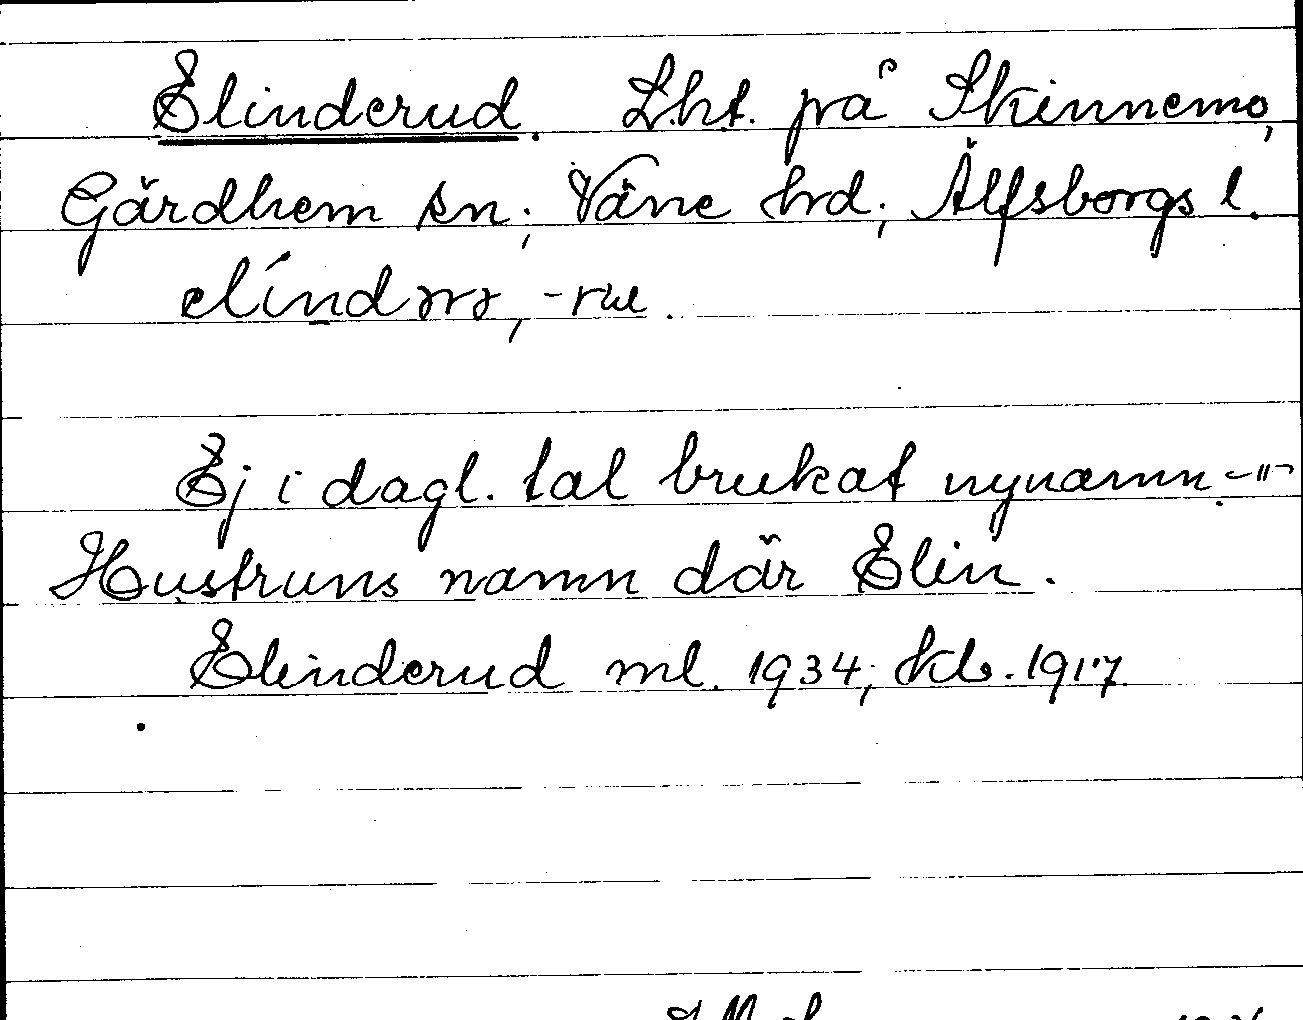 Elinderud. Lht. på Skinnemo,
Gärdhem sn; Väne hrd; Älfsborgs l.
Ej i dagl. tal brukat nynamn. -"-
Hustruns namn där Elin.
Elinderud ml. 1934; kb. 1917